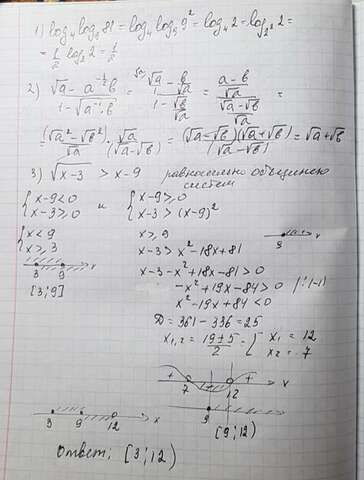 1) log₄ log₉ 81 = log₄ log₉ 9² = log₄ 2 = log₂² 2 =
= 1/2 log₂ 2 = 1/2
2) (√a - a^(-1/2) b)/(1 - √(a⁻¹ · b)) = (√a - b/√a)/(1 - √b/√a) = ((a - b)/√a)/((√a - √b)/√a) =
= (√a² - √b²)/√a · √a/(√a - √b) = (√a - √b)(√a + √b)/(√a - √b) = √a + √b
3) √(x-3) > x-9 равносильно объединению
систем
{ x-9<0 и { x-9≥0
{ x-3≥0 { x-3 > (x-9)²
{ x<9 x≥9
{ x≥3 x-3 > x²-18x+81
3 9 x
9 x
[3;9] x-3-x²+18x-81>0
-x²+19x-84>0 |:(-1)
x²-19x+84<0
D = 361 - 336 = 25
x₁,₂ = (19±5)/2 = [ x₁ = 12
x₂ = 7
+ 7 - 12 + x
9
[9;12)
3 9 12 x
Ответ: [3;12)